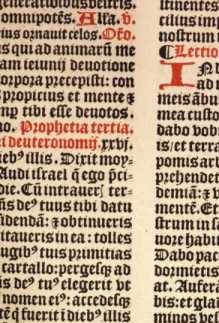 generationibus vestris.
omnipotēs. Alia. v̄.
ius ornauit celos. Oro.
s qui ad animarū me
am ieiunij deuotione
orpora precepisti: con
propicius et mente ⁊
np tibi esse deuotos.
no. Prophetia tertia.
ri deuteronomij. xxvj.
ieb⁹ illis. Dixit moy-
Audi israel q̄ ego p̄ci-
die. Cū intrauer̄ ter-
ns de⁹ tuus tibi datu
idendā: ⁊ obtinueris
itaueris in ea: tolles
ugib⁹ tuis primitias
cartallo: pergesq̄ ad
ns de⁹ tu⁹ elegerit vt
nomen ei⁹: accedesq̄
tē q̄ fuerit ī dieb⁹ illis
tinentes
cilius im
nostrum i
¶ Lectio
IN d
ad
meis ābu
mea custo
dabo vob
is/et terra
pomis art
prehendet
demiā: ⁊ v
mentē. Et
strum in sa
uore habi
Dabo pac
dormietis
at. Auferā
bis: et glad
minos ve